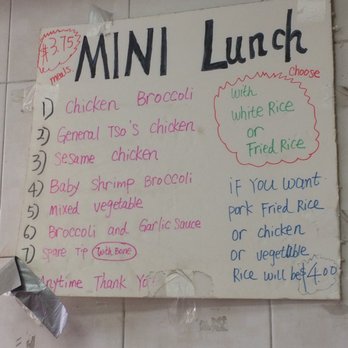 $3.75
meals.
MINI Lunch
1) Chicken Broccoli
2) General TSO's chicken
3) Sesame chicken
4) Baby shrimp Broccoli
5) mixed vegetable
6) Broccoli and Garlic Sauce
7) Spare Tip (with Bone)
Anytime Thank Yo
Choose
with
white Rice
or
Fried Rice
iF YOU WANT
pork Fried Rice
or chicken
or vegetable
Rice will be $4.00